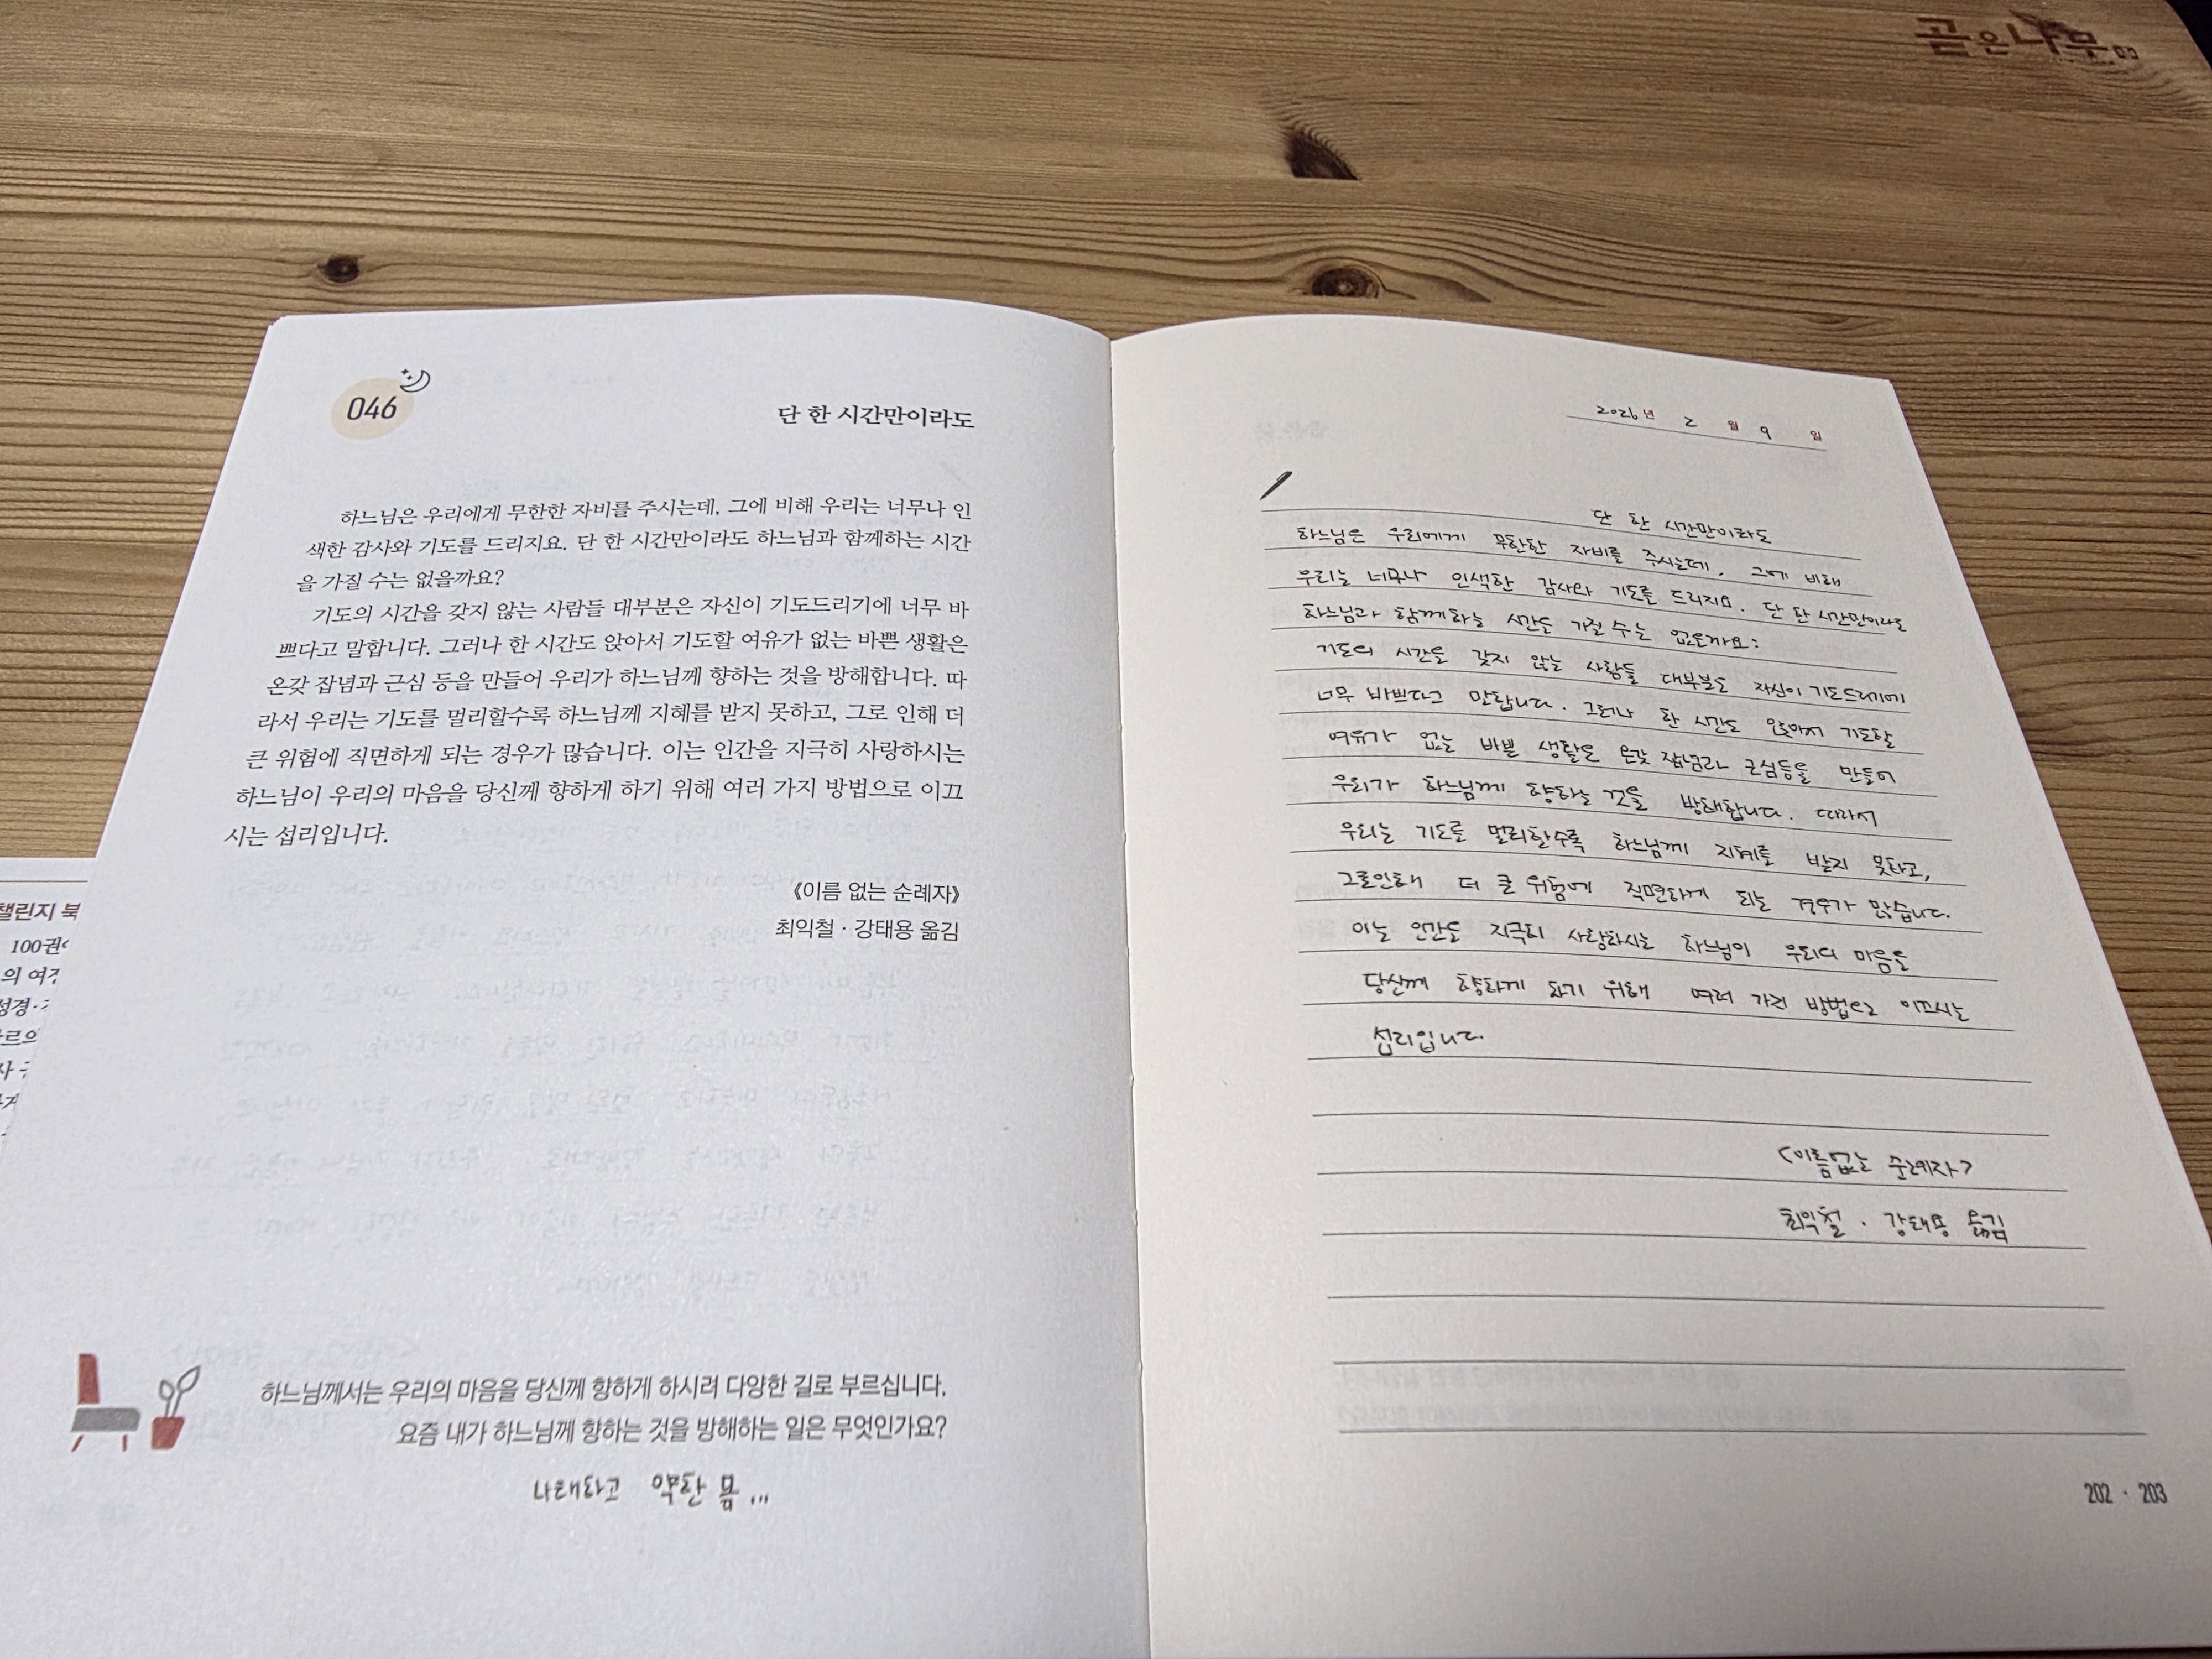 곧은나무
046
단 한 시간만이라도
하느님은 우리에게 무한한 자비를 주시는데, 그에 비해 우리는 너무나 인
색한 감사와 기도를 드리지요. 단 한 시간만이라도 하느님과 함께하는 시간
을 가질 수는 없을까요?
기도의 시간을 갖지 않는 사람들 대부분은 자신이 기도드리기에 너무 바
쁘다고 말합니다. 그러나 한 시간도 앉아서 기도할 여유가 없는 바쁜 생활은
온갖 잡념과 근심 등을 만들어 우리가 하느님께 향하는 것을 방해합니다. 따
라서 우리는 기도를 멀리할수록 하느님께 지혜를 받지 못하고, 그로 인해 더
큰 위험에 직면하게 되는 경우가 많습니다. 이는 인간을 지극히 사랑하시는
하느님이 우리의 마음을 당신께 향하게 하기 위해 여러 가지 방법으로 이끄
시는 섭리입니다.
《이름 없는 순례자》
최익철 · 강태용 옮김
하느님께서는 우리의 마음을 당신께 향하게 하시려 다양한 길로 부르십니다.
요즘 내가 하느님께 향하는 것을 방해하는 일은 무엇인가요?
나태하고 약한 몸...
챌린지 북
100권
의 여정
성경·
2026년 2월 9일
단 한 시간만이라도
하느님은 우리에게 무한한 자비를 주시는데, 그에 비해
우리는 너무나 인색한 감사와 기도를 드리지요. 단 한 시간만이라도
하느님과 함께하는 시간을 가질 수는 없을까요?
기도의 시간을 갖지 않는 사람들 대부분은 자신이 기도드리기에
너무 바쁘다고 말합니다. 그러나 한 시간도 앉아서 기도할
여유가 없는 바쁜 생활은 온갖 잡념과 근심등을 만들어
우리가 하느님께 향하는 것을 방해합니다. 따라서
우리는 기도를 멀리할수록 하느님께 지혜를 받지 못하고,
그로인해 더 큰 위험에 직면하게 되는 경우가 많습니다.
이는 인간을 지극히 사랑하시는 하느님이 우리의 마음을
당신께 향하게 하기 위해 여러 가지 방법으로 이끄시는
섭리입니다.
<이름없는 순례자>
최익철 · 강태용 옮김
202 · 203